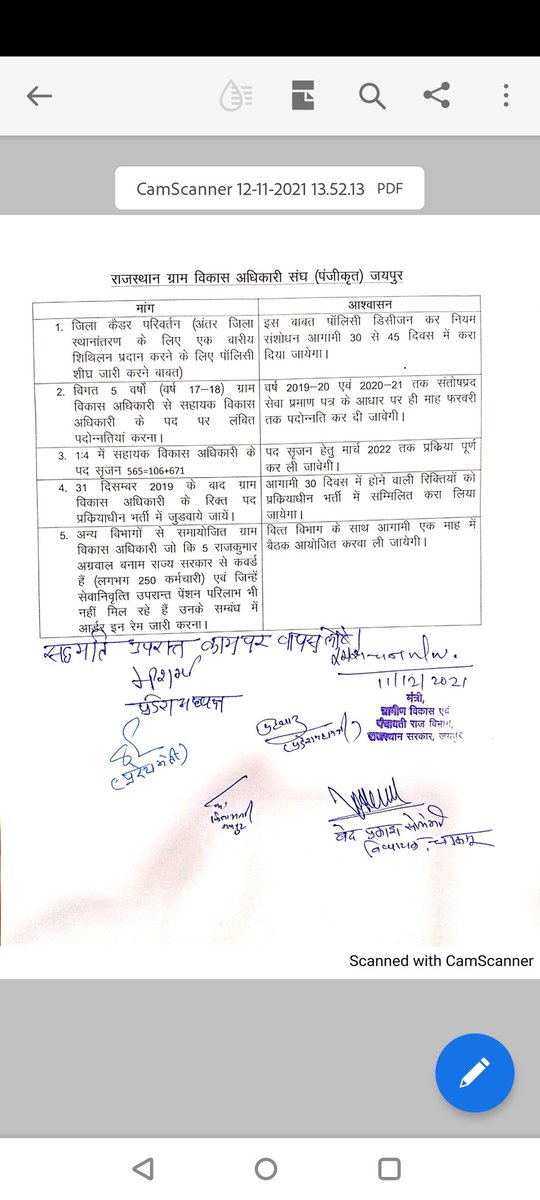 CamScanner 12-11-2021 13.52.13 PDF
राजस्थान ग्राम विकास अधिकारी संघ (पंजीकृत) जयपुर
मांग
आश्वासन
1. जिला कैडर परिवर्तन (अंतर जिला
स्थानांतरण के लिए एक बारीय
शिथिलन प्रदान करने के लिए पॉलिसी
शीघ्र जारी करने बाबत)
इस बाबत पॉलिसी डिसीजन कर नियम
संशोधन आगामी 30 से 45 दिवस में करा
दिया जायेगा।
2. विगत 5 वर्षो (वर्ष 17–18) ग्राम
विकास अधिकारी से सहायक विकास
अधिकारी के पद पर लंबित
पदोन्नतियां करना।
वर्ष 2019–20 एवं 2020–21 तक संतोषप्रद
सेवा प्रमाण पत्र के आधार पर ही माह फरवरी
तक पदोन्नति कर दी जावेगी।
3. 1:4 में सहायक विकास अधिकारी के
पद सृजन 565=106+671
पद सृजन हेतु मार्च 2022 तक प्रकिया पूर्ण
कर ली जावेगी।
4. 31 दिसम्बर 2019 के बाद ग्राम
विकास अधिकारी के रिक्त पद
प्रकियाधीन भर्ती में जुडवाये जायें।
आगामी 30 दिवस में होने वाली रिक्तियों को
प्रकियाधीन भर्ती में सम्मिलित करा लिया
जायेगा।
5. अन्य विभागों से समायोजित ग्राम
विकास अधिकारी जो कि 5 राजकुमार
अग्रवाल बनाम राज्य सरकार से कवर्ड
हैं (लगभग 250 कर्मचारी) एवं जिन्हें
सेवानिवृत्ति उपरान्त पेंशन परिलाभ भी
नहीं मिल रहे हैं उनके सम्बंध में
आर्डर इन रेम जारी करना।
वित्त विभाग के साथ आगामी एक माह में
बैठक आयोजित करवा ली जायेगी।
सहमति उपरान्त काम पर वापस लौटे।
11/12/2021
मंत्री,
ग्रामीण विकास एवं
पंचायती राज विभाग,
राजस्थान सरकार, जयपुर
वेद प्रकाश सोलंकी
विधायक, चाकसू
Scanned with CamScanner